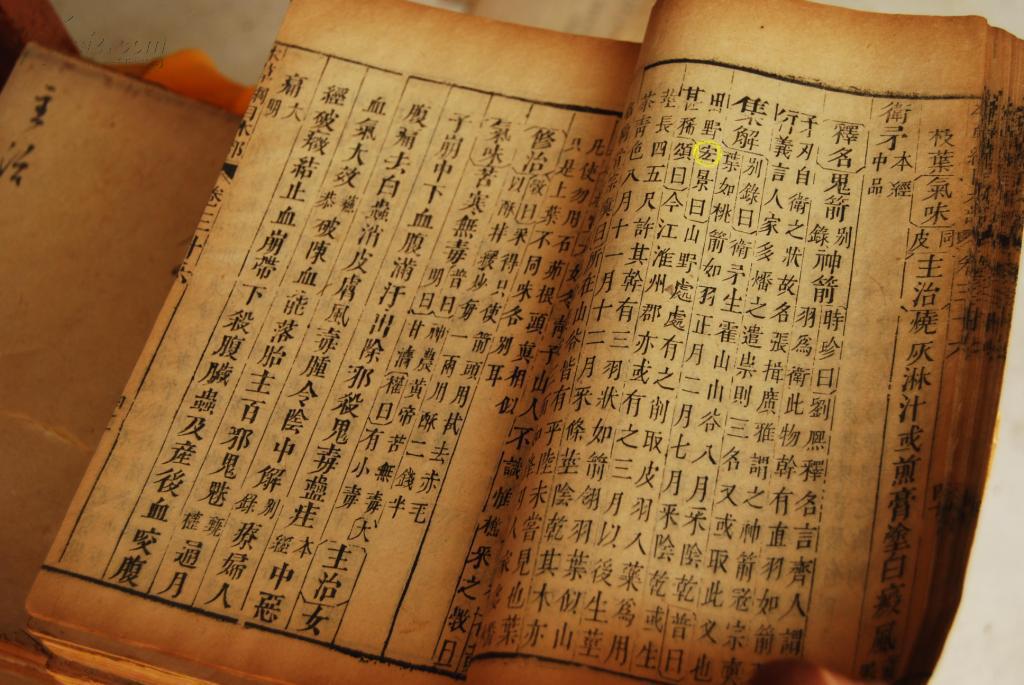 枝葉氣味同皮主治燒灰淋汁或煎膏塗白癜風
衛矛本經中品
釋名鬼箭別錄神箭時珍曰劉熙釋名言齊人謂
羽為衛此物幹有直羽如箭
矛刃自衛之狀故名張揖廣雅謂之神箭寇宗奭
衍義言人家多燔之遣祟則三名又或取此義也
集解別錄曰衛矛生霍山山谷八月采陰乾普曰
葉如桃箭如羽正月二月七月采陰乾或生
田野宏景曰山野處處有之削取皮羽人藥為用
甚稀頌曰今江淮州郡亦或有之三月以後生莖
莖長四五尺許其幹有三羽狀如箭翎羽葉似山
茶青色八月十一月十二月采條莖陰乾其木亦
宗奭曰所在山谷皆有平陸未嘗見也葉
山人不識惟樵采之斆曰
凡使勿用石茆根頭真相似
只是上葉不同味各別耳
修治斆曰采得只使箭頭用拭去赤毛
以酥拌緩炒每一兩用酥二錢半
氣味苦寒無毒普曰神農黃帝苦無毒大
明曰甘濇權曰有小毒
主治女
子崩中下血腹滿汗出除邪殺鬼毒蠱疰本經中惡
腹痛去白蟲消皮膚風毒腫令陰中解別錄療婦人
血氣大效蘇恭破陳血能落胎主百邪鬼魅甄權通月
經破癥結止血崩帶下殺腹臟蟲及產後血咬腹
痛大明
卷三十六
主治